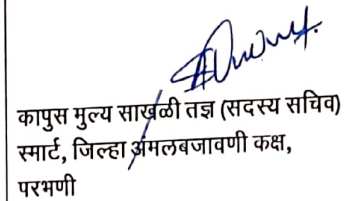 कापुस मुल्य साखळी तज्ञ (सदस्य सचिव)
स्मार्ट, जिल्हा अंमलबजावणी कक्ष,
परभणी